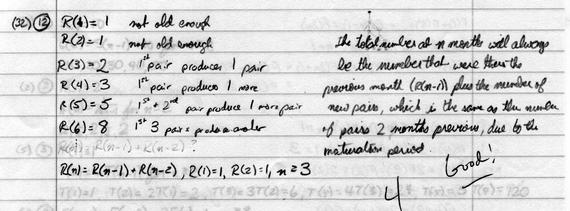 (32) (13) R(1) = 1 not old enough
R(2) = 1 not old enough
R(3) = 2 1st pair produces 1 pair
R(4) = 3 1st pair produces 1 more
R(5) = 5 1st + 2nd pair produce 1 more pair
R(6) = 8 1st 3 pairs produce another
R(n) = R(n-1) + R(n-2) ?
R(n) = R(n-1) + R(n-2), R(1)=1, R(2)=1, n ≥ 3
The total number at n months will always
be the number that were there the
previous month (R(n-1)) plus the number of
new pairs, which is the same as the number
of pairs 2 months previous, due to the
maturation period.
4
Good!